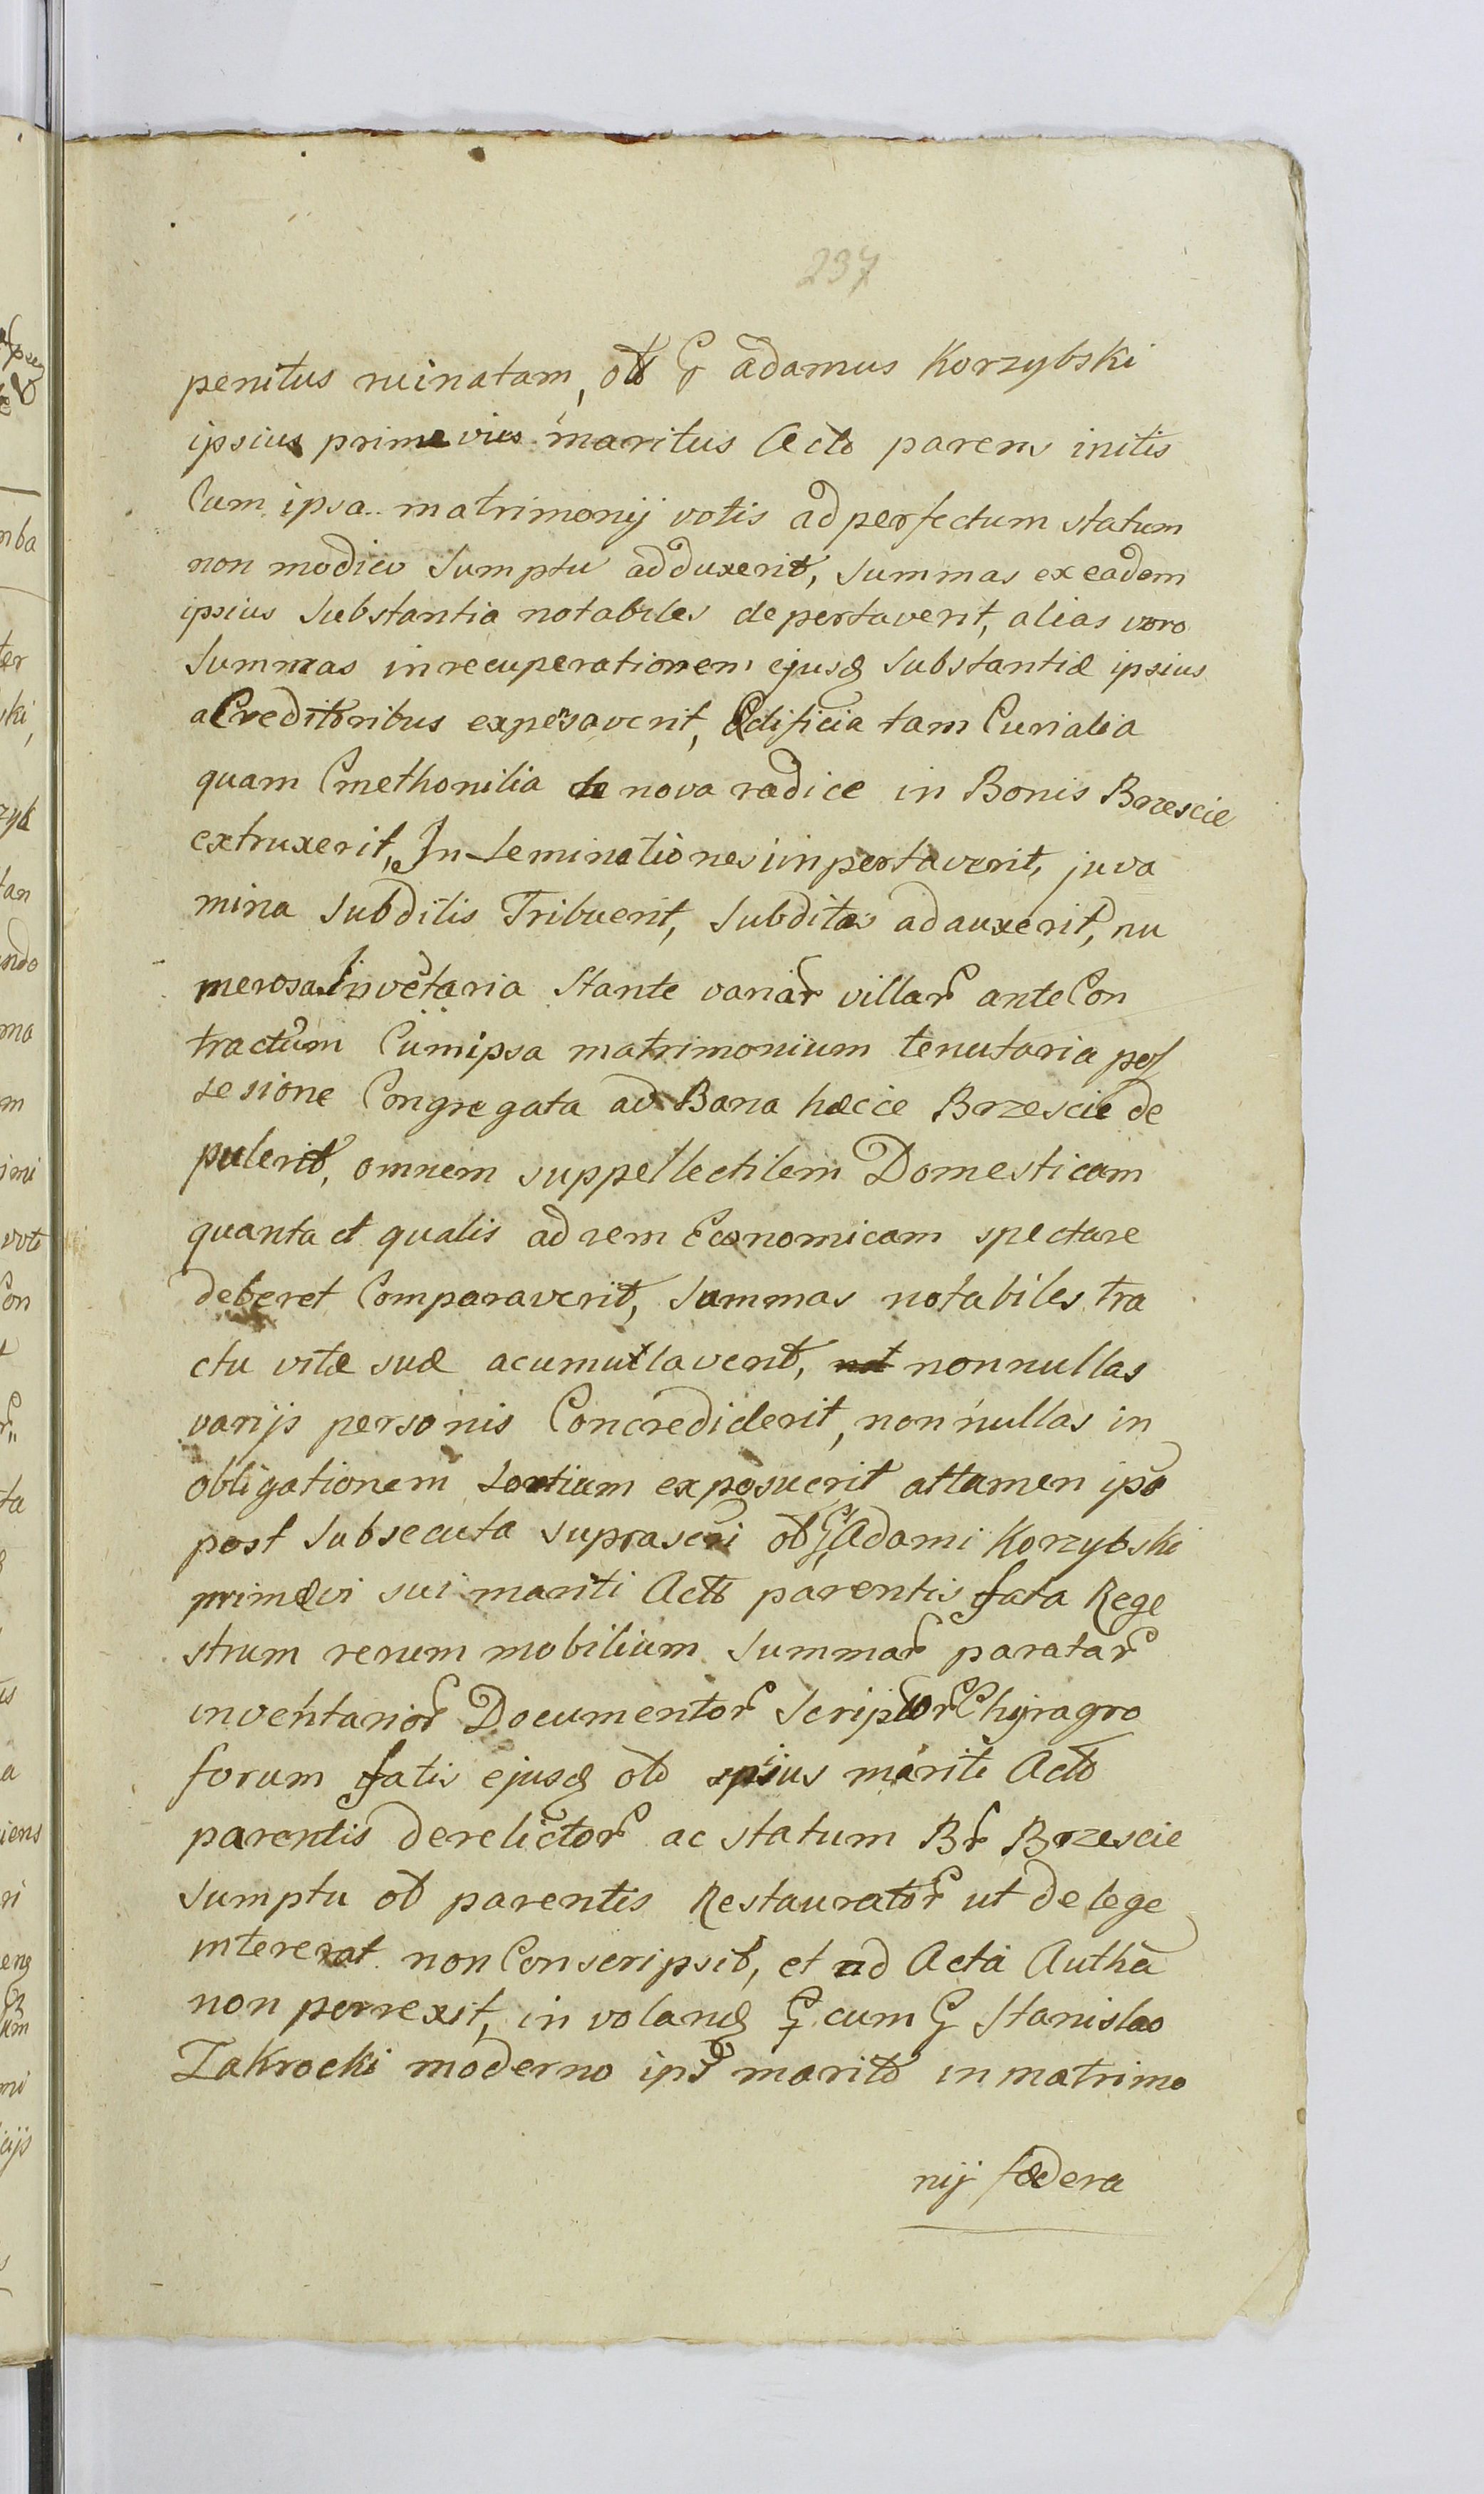 237
penitus ruinatam, olb G adamus Korzybski
ipsius primevius maritus Actō parens initis
Cum ipsa matrimonij votis ad perfectum statum
non modico Sumptu adduxerit, Summas ex eadem
ipsius Substantia notabiles deportaverit, alias vero
Summas in recuperationem ejusq Substantiæ ipsius
a Creditoribus expensaverit, Ædificia tam Curialia
quam Cmethonilia de nova radice in Bonis Brzescie
extruxerit, In Seminationes importaverit, juva
mina Subditis Tribuerit, Subditos adauxerit, nu
merosa Invētaria Stante variar villar ante Con
tractum Cum ipsa matrimonium tenutaria pos
sesione Congregata ad Bona hæcce Brzescie de
pulerit, omnem suppellectilem Domesticam
quanta et qualis ad rem Economicam spectare
deberet Comparaverit, Summas notabiles tra
ctu vitæ suæ acumullaverit, nonnullas
varijs personis Concrediderit, nonnullas in
obligationem Sortium exposuerit attamen ipa
post Subsecuta suprascri ob G Adami Korzybski
primævi sui mariti Actō parentis fata Rege
strum rerum mobilium Summar paratar
inventarior Documentor Scriptor Chyrogro
forum fatis ejusq olb ipsius mariti Actō
parentis derelictor ac statum Br Brzescie
Sumptu ob parentis Restaurator ut de lege
intererat non Conscripsit, et ad Acta Authā
non porrexit, in volanq G cum G Stanislao
Zakrocki moderno ips marito in matrimo
nij fædera